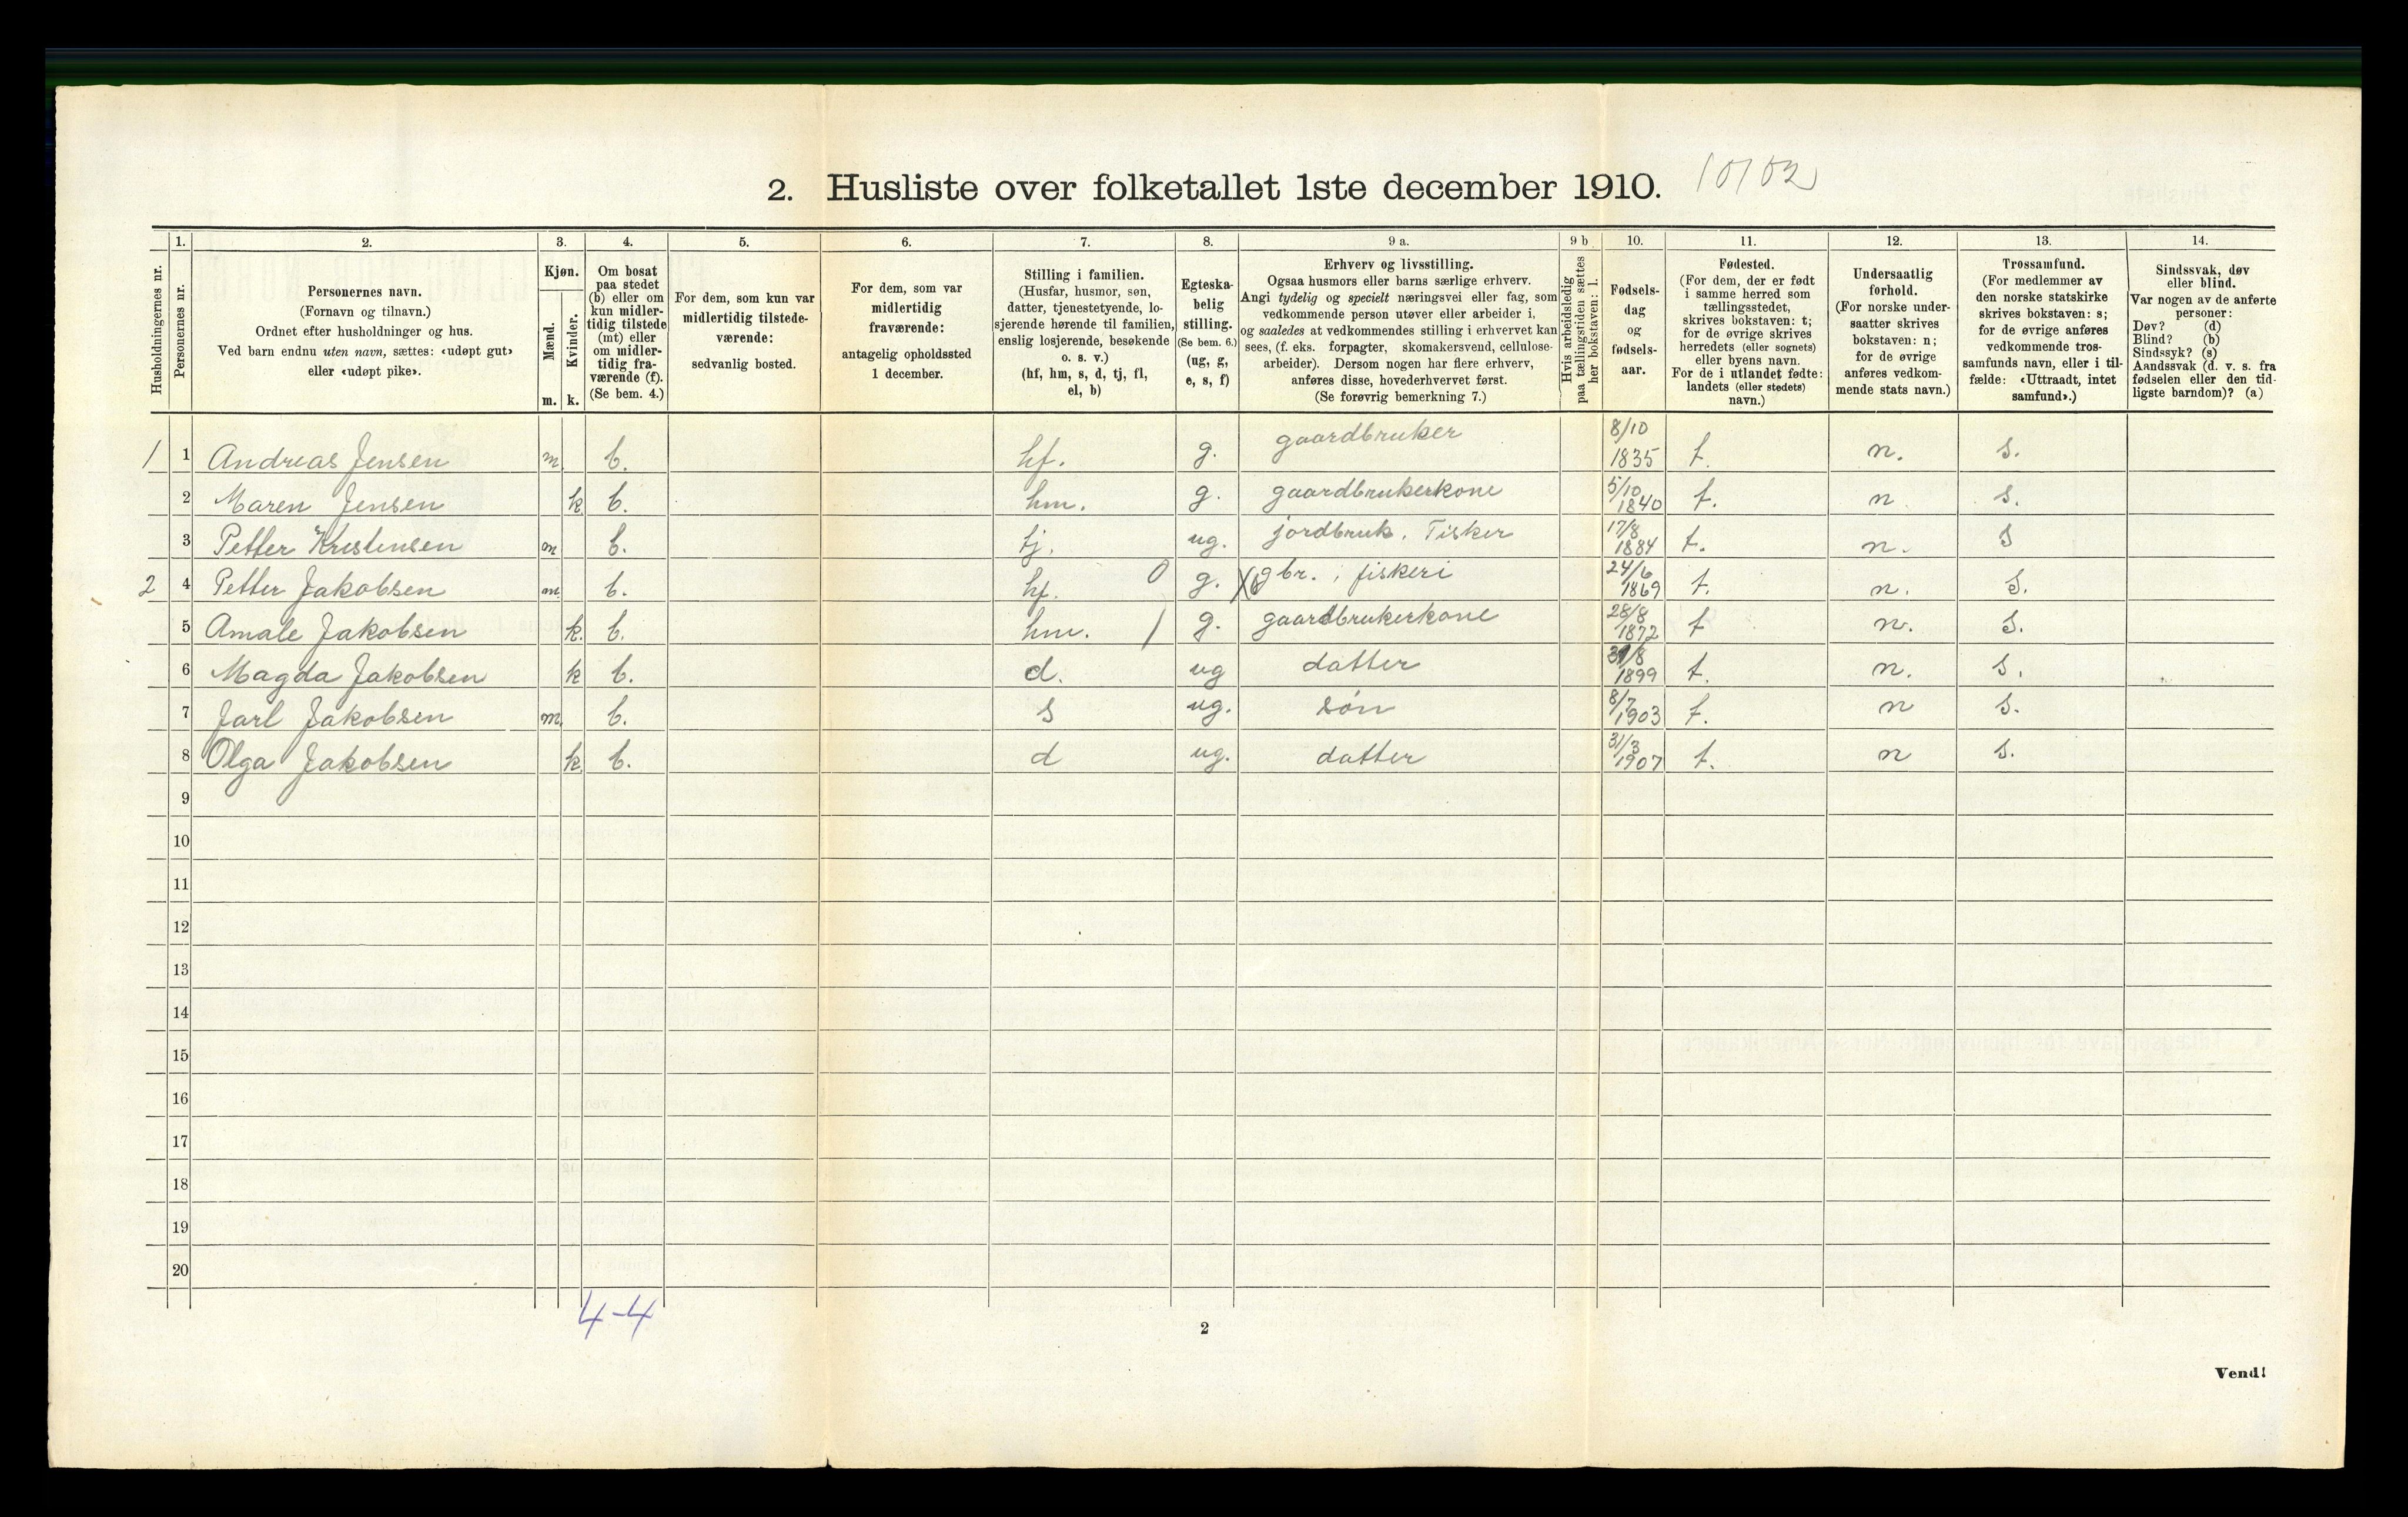 2. Husliste over folketallet 1ste december 1910. 10/02
1. 2. 3. 4. 5. 6. 7. 8. 9 a. 9 b 10. 11. 12. 13. 14.
Husholdningernes nr.
Personernes nr.
Personernes navn.
(Fornavn og tilnavn.)
Ordnet efter husholdninger og hus.
Ved barn endnu uten navn, sættes: «udøpt gut»
eller «udøpt pike».
Kjøn.
Mænd.
Kvinder.
m. k.
Om bosat
paa stedet
(b) eller om
kun midler-
tidig tilstede
(mt) eller
om midler-
tidig fra-
værende (f).
(Se bem. 4.)
For dem, som kun var
midlertidig tilstede-
værende:
sedvanlig bosted.
For dem, som var
midlertidig
fraværende:
antagelig opholdssted
1 december.
Stilling i familien.
(Husfar, husmor, søn,
datter, tjenestetyende, lo-
sjerende hørende til familien,
enslig losjerende, besøkende
o. s. v.)
(hf, hm, s, d, tj, fl,
el, b)
Egteska-
belig
stilling.
(Se bem. 6.)
(ug, g,
e, s, f)
Erhverv og livsstilling.
Ogsaa husmors eller barns særlige erhverv.
Angi tydelig og specielt næringsvei eller fag, som
vedkommende person utøver eller arbeider i,
og saaledes at vedkommendes stilling i erhvervet kan
sees, (f. eks. forpagter, skomakersvend, cellulose-
arbeider). Dersom nogen har flere erhverv,
anføres disse, hovederhvervet først.
(Se forøvrig bemerkning 7.)
Hvis arbeidsledig
paa tællingstiden sættes
her bokstaven: l.
Fødsels-
dag
og
fødsels-
aar.
Fødested.
(For dem, der er født
i samme herred som
tællingsstedet,
skrives bokstaven: t;
for de øvrige skrives
herredets (eller sognets)
eller byens navn.
For de i utlandet fødte:
landets (eller stedets)
navn.)
Undersaatlig
forhold.
(For norske under-
saatter skrives
bokstaven: n;
for de øvrige
anføres vedkom-
mende stats navn.)
Trossamfund.
(For medlemmer av
den norske statskirke
skrives bokstaven: s;
for de øvrige anføres
vedkommende tros-
samfunds navn, eller i til-
fælde: «Uttraadt, intet
samfund».)
Sindssvak, døv
eller blind.
Var nogen av de anførte
personer:
Døv? (d)
Blind? (b)
Sindssyk? (s)
Aandssvak (d. v. s. fra
fødselen eller den tid-
ligste barndom)? (a)
1 1 Andreas Jensen m b. hf. g. gaardbruker 8/10 1835 t. n. s.
2 Maren Jensen k b. hm. g. gaardbrukerkone 5/10 1840 t. n s.
3 Petter Kristensen m b. tj. ug. jordbruk. Fisker 17/8 1884 t. n. s
2 4 Petter Jakobsen m b. hf. 0 g. gbr. , fiskeri 24/6 1869 t. n. s.
5 Amale Jakobsen k. b. hm. 1 g. gaardbrukerkone 28/8 1872 t n. s.
6 Magda Jakobsen k b. d. ug datter 31/8 1899 t. n. s.
7 Jarl Jakobsen m. b. s ug. søn 8/7 1903 t. n s.
8 Olga Jakobsen k b. d ug. datter 31/3 1907 t. n s.
9
10
11
12
13
14
15
16
17
18
19
20
4-4
2
Vend!